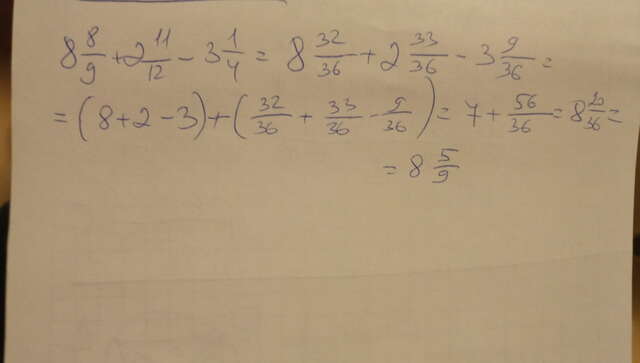 8 8/9 + 2 11/12 - 3 1/4 = 8 32/36 + 2 33/36 - 3 9/36 =
= (8+2-3)+(32/36 + 33/36 - 9/36) = 7 + 56/36 = 8 20/36 =
= 8 5/9